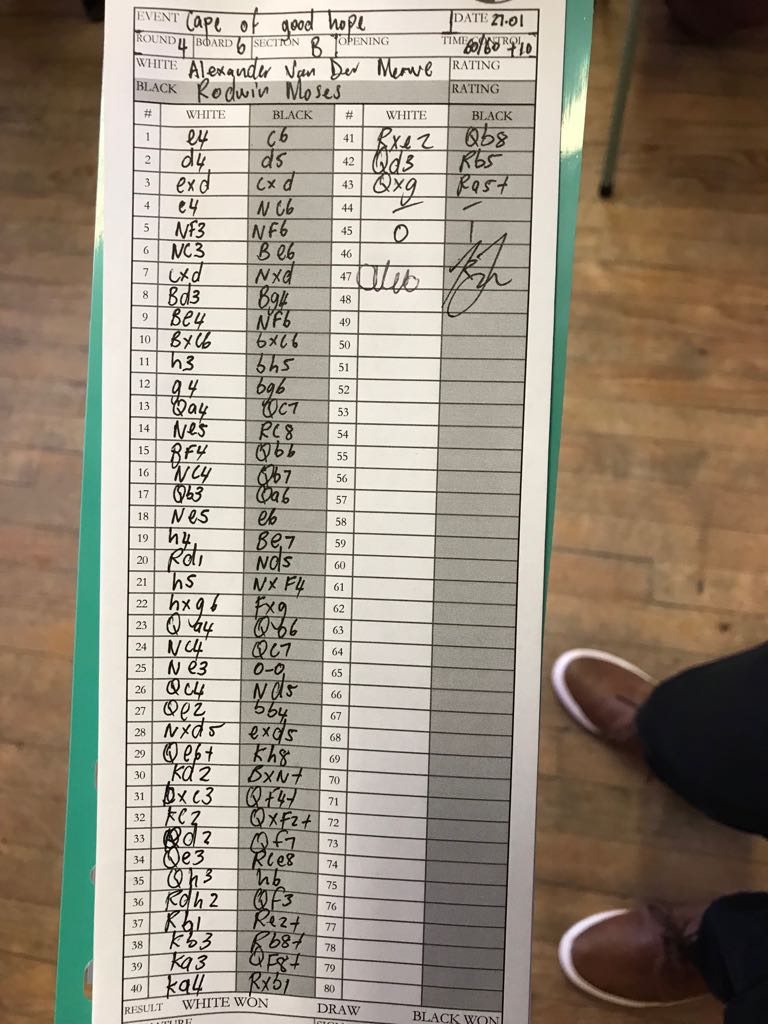 EVENT Cape of good hope DATE 27.01
ROUND 4 BOARD 6 SECTION B OPENING TIME CONTROL 60/60 +10
WHITE Alexander Van Der Merwe RATING
BLACK Rodwin Moses RATING
# WHITE BLACK # WHITE BLACK
1 e4 c6 41 Bxe2 Qb8
2 d4 d5 42 Qd3 Rb5
3 exd cxd 43 Qxg Ra5+
4 c4 NC6 44 – –
5 NF3 NF6 45 0 1
6 NC3 Be6 46
7 cxd Nxd 47
8 Bd3 Bg4 48
9 Be4 NF6 49
10 BxC6 bxC6 50
11 h3 bh5 51
12 g4 bg6 52
13 Qa4 QC7 53
14 Ne5 RC8 54
15 BF4 Qb6 55
16 NC4 Qb7 56
17 Qb3 Qa6 57
18 Ne5 e6 58
19 h4 Be7 59
20 Rd1 Nd5 60
21 h5 NxF4 61
22 hxg6 Fxg 62
23 Qa4 Qb6 63
24 NC4 QC7 64
25 Ne3 0-0 65
26 QC4 Nd5 66
27 Qe2 bb4 67
28 Nxd5 exd5 68
29 Qe6+ Kh8 69
30 Kd2 BxN+ 70
31 bxC3 QF4+ 71
32 KC2 QxF2+ 72
33 Qd2 Qf7 73
34 Qe3 Rce8 74
35 Qh3 h6 75
36 Rdh2 QF3 76
37 Rb1 Re2+ 77
38 Kb3 Rb8+ 78
39 Ka3 QF8+ 79
40 Ka4 Rxb1 80
RESULT WHITE WON DRAW BLACK WON